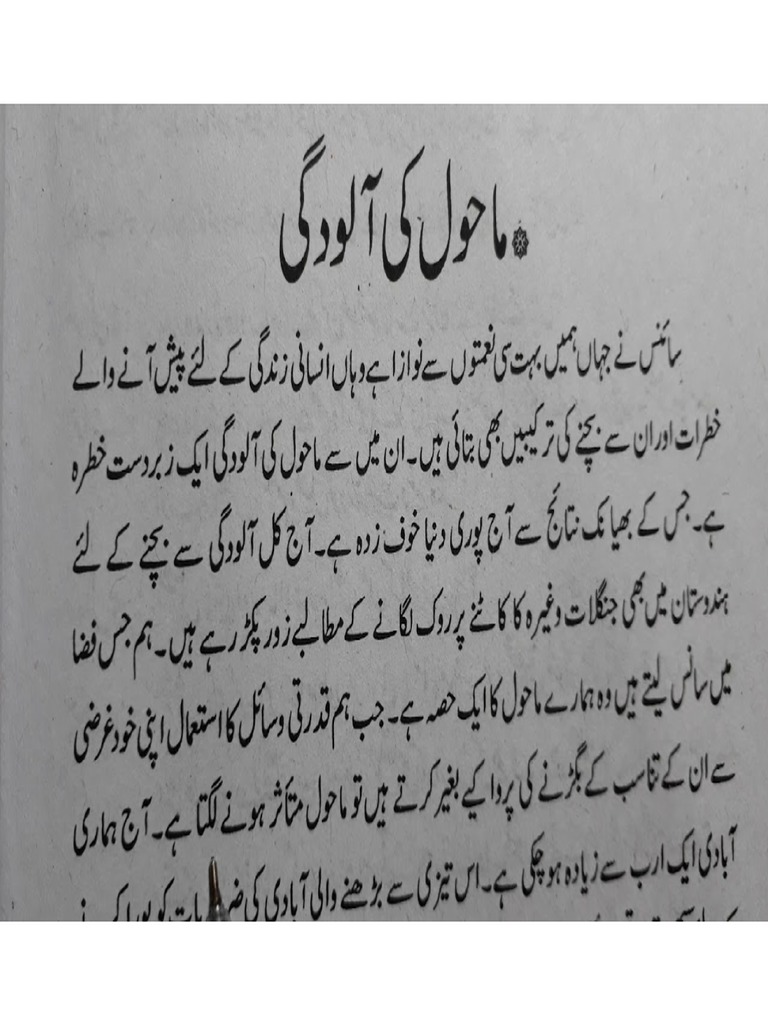 ماحول کی آلودگی
سائنس نے جہاں ہمیں بہت سی نعمتوں سے نوازا ہے وہاں انسانی زندگی کے لئے پیش آنے والے
خطرات اور ان سے بچنے کی ترکیبیں بھی بتائی ہیں۔ ان میں سے ماحول کی آلودگی ایک زبردست خطرہ
ہے۔ جس کے بھیانک نتائج سے آج پوری دنیا خوف زدہ ہے۔ آج کل آلودگی سے بچنے کے لئے
ہندوستان میں بھی جنگلات وغیرہ کا کاٹنے پر روک لگانے کے مطالبے زور پکڑ رہے ہیں۔ ہم جس فضا
میں سانس لیتے ہیں وہ ہمارے ماحول کا ایک حصہ ہے۔ جب ہم قدرتی وسائل کا استعمال اپنی خود غرضی
سے ان کے تناسب کے بگڑنے کی پروا کیے بغیر کرتے ہیں تو ماحول متأثر ہونے لگتا ہے۔ آج ہماری
آبادی ایک ارب سے زیادہ ہو چکی ہے۔ اس تیزی سے بڑھنے والی آبادی کی